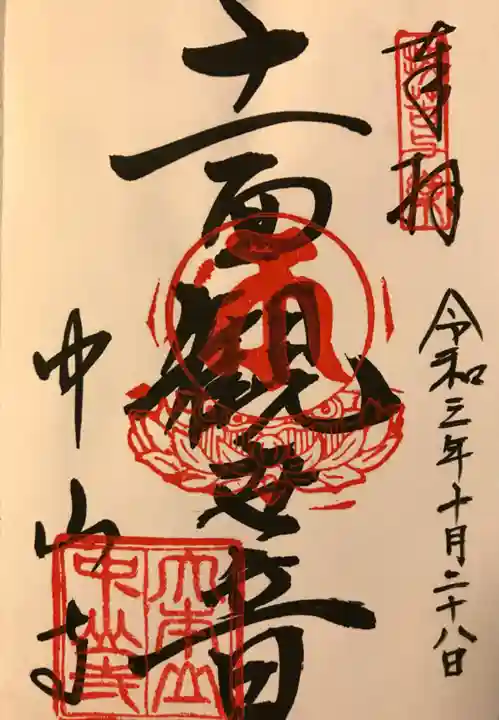 奉拝
令和三年十月二十八日
十一面観世音
中山寺
大本山
中山寺